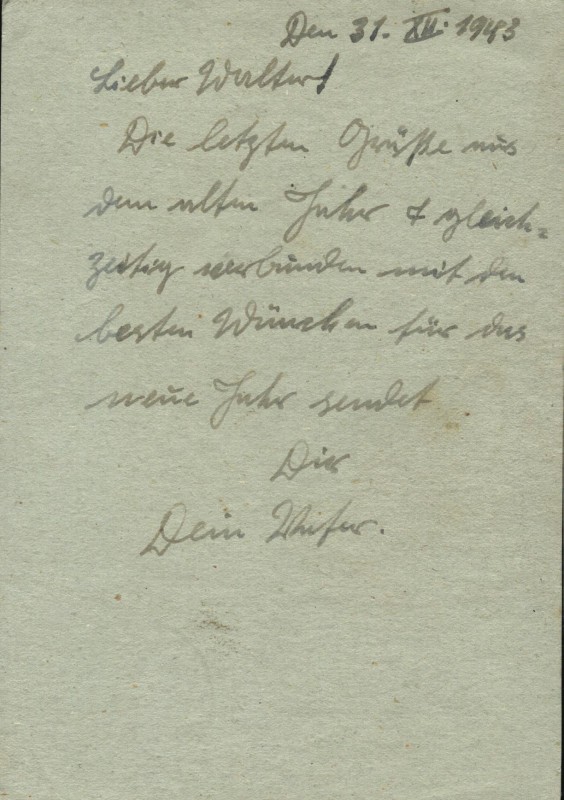 Den 31. XII. 1943
Lieber Walter!
Die letzten Grüße aus
dem alten Jahr & gleich=
zeitig verbunden mit den
besten Wünschen für das
neue Jahr sendet
Dir
Dein